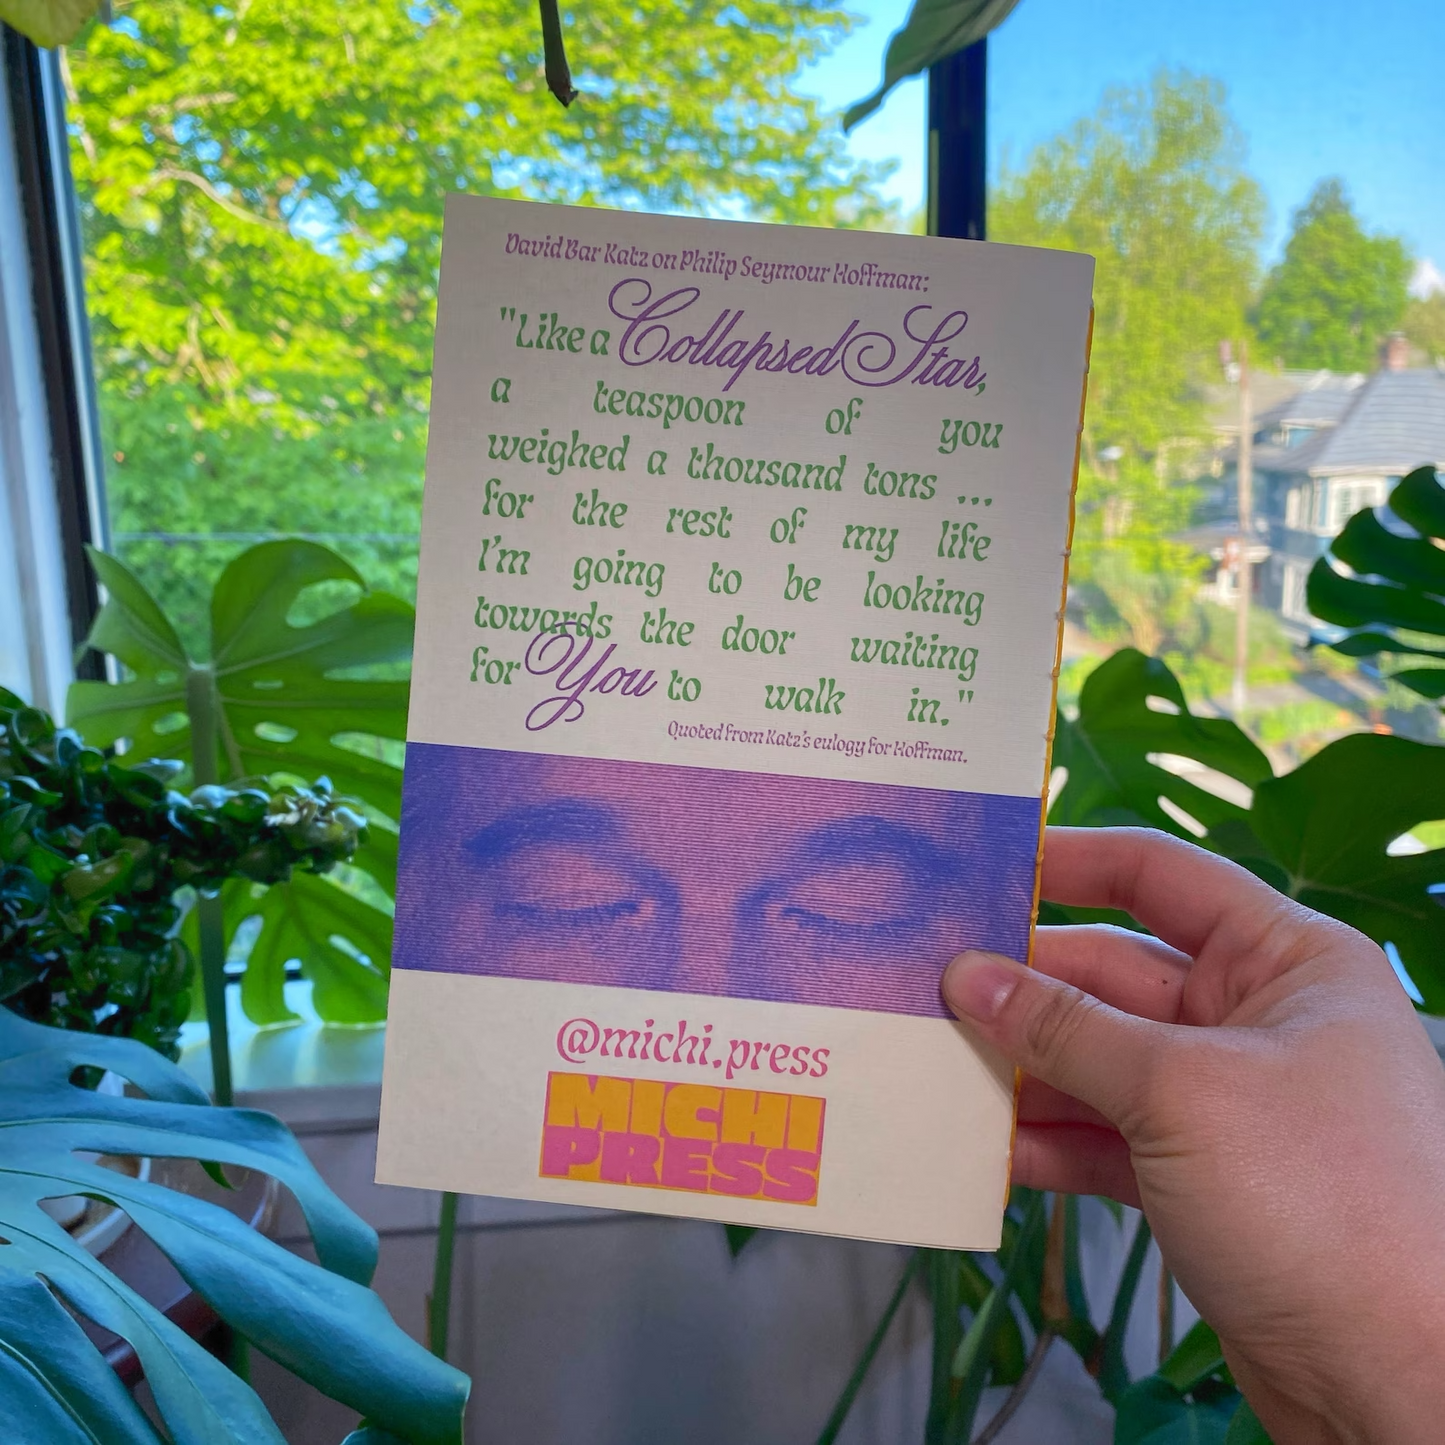 David Bar Katz on Philip Seymour Hoffman:
"Like a Collapsed Star,
a teaspoon of you
weighed a thousand tons ...
for the rest of my life
I'm going to be looking
towards the door waiting
for You to walk in."
Quoted from Katz's eulogy for Hoffman.
@michi.press
MICHI
PRESS